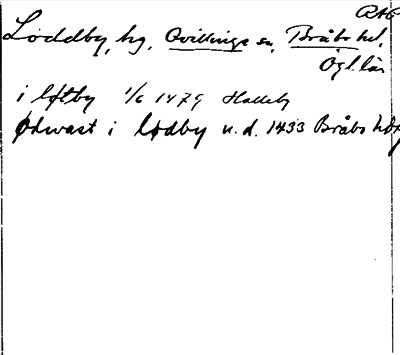 RAÄ
Loddby, hg, Qvillinge sn, Bråbo hd,
Ögl. län
i løtby 1/6 1479 Halleby
ødwast i lødby u. d. 1433 Bråbo hdr